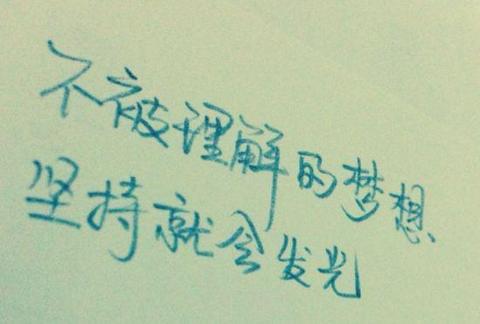 不被理解的梦想、
坚持就会发光